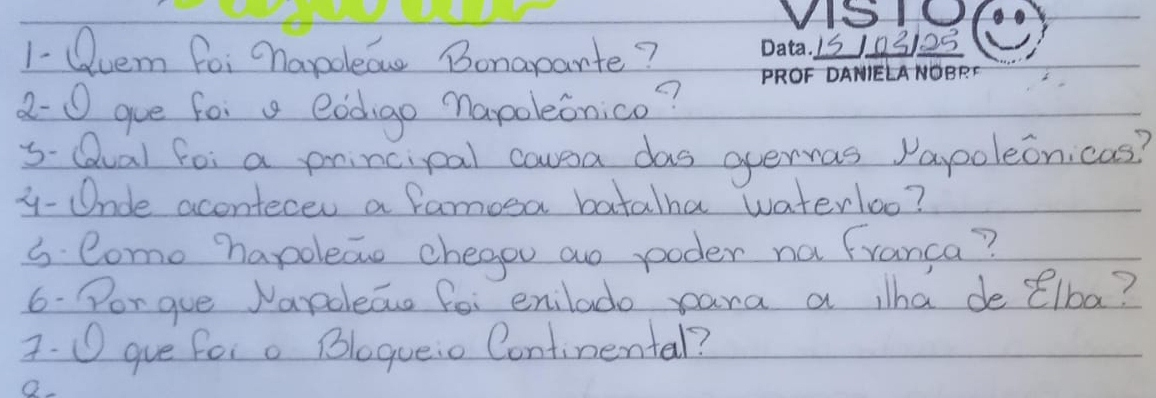 VISTO
Data. 15/03/25
PROF DANIELA NOBRE
1- Quem foi Napoleão Bonaparte?
2- O que foi o Código Napoleônico?
3- Qual foi a principal causa das guerras Napoleônicas?
4- Onde aconteceu a famosa batalha Waterloo?
5- Como Napoleão chegou ao poder na França?
6- Por que Napoleão foi exilado para a ilha de Elba?
7- O que foi o Bloqueio Continental?
8-